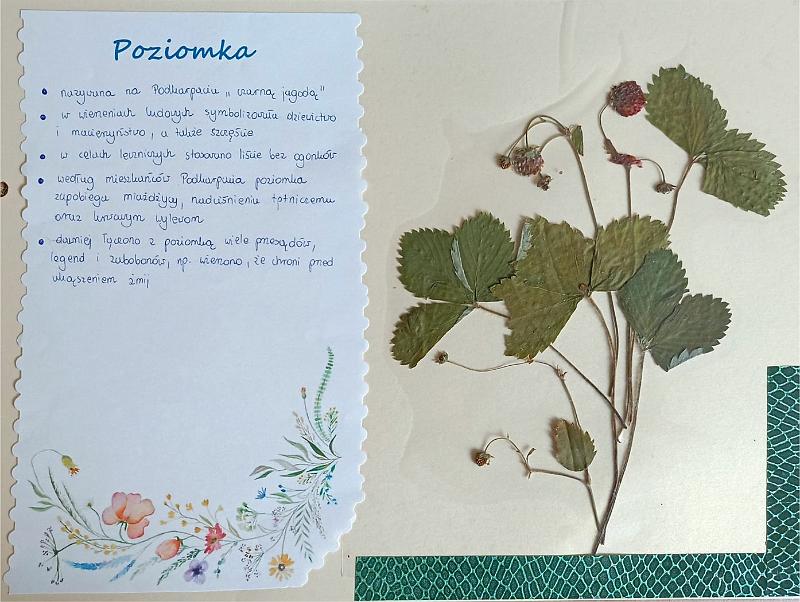 Poziomka
• nazywana na Podkarpaciu „ czarną jagodą"
• w wierzeniach ludowych symbolizowała dziewictwo
i macierzyństwo, a także szczęście
• w celach leczniczych stosowano liście bez ogonków
• według mieszkańców Podkarpacia poziomka
zapobiega miażdżycy, nadciśnieniu tętniczemu
oraz krwawym wylewom
• dawniej łączono z poziomką wiele przesądów,
legend i zabobonów, np. wierzono, że chroni przed
ukąszeniem żmij